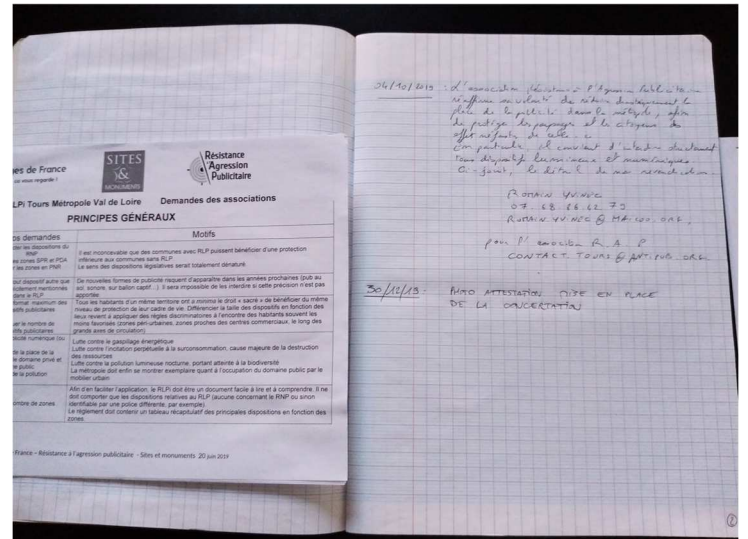 es de France
SITES
&
MONUMENTS
Résistance
à l'Agression
Publicitaire
LPi Tours Métropole Val de Loire Demandes des associations
PRINCIPES GÉNÉRAUX
os demandes
Motifs
der les dispositions du
RNP
es zones SPR et PDA
les zones en PNR
Il est inconcevable que des communes avec RLP puissent bénéficier d'une protection
inférieure aux communes sans RLP.
Le sens des dispositions législatives serait totalement dénaturé.
out dispositif autre que
icitement mentionnés
dans le RLP
De nouvelles formes de publicité risquent d'apparaître dans les années prochaines (pub au
sol, sonore, sur ballon captif…). Il sera impossible de les interdire si cette précision n'est pas
apportée.
format maximum des
sitifs publicitaires
er le nombre de
itifs publicitaires
Tous les habitants d'un même territoire ont a minima le droit « sacré » de bénéficier du même
niveau de protection de leur cadre de vie. Différencier la taille des dispositifs en fonction des
lieux revient à appliquer des règles discriminatoires à l'encontre des habitants souvent les
moins favorisés (zones péri-urbaines, zones proches des centres commerciaux, le long des
grands axes de circulation).
numérique (ou
de la place de la
le domaine privé et
e public
de la pollution
Lutte contre le gaspillage énergétique
Lutte contre l'incitation perpétuelle à la surconsommation, cause majeure de la destruction
des ressources
Lutte contre la pollution lumineuse nocturne, portant atteinte à la biodiversité
La métropole doit enfin se montrer exemplaire quant à l'occupation du domaine public par le
mobilier urbain
ombre de zones
Afin d'en faciliter l'application, le RLPi doit être un document facile à lire et à comprendre. Il ne
doit comporter que les dispositions relatives au RLP (aucune concernant le RNP ou sinon
identifiable par une police différente, par exemple).
Le règlement doit contenir un tableau récapitulatif des principales dispositions en fonction des
zones.
France – Résistance à l'agression publicitaire – Sites et monuments 20 juin 2019
04/10/2019 : L'association Résistance à l'Agression Publicitaire
réaffirme sa volonté de réduire drastiquement la
place de la publicité dans la métropole, afin
de protéger les paysages et les citoyens des
effets néfastes de celle-ci
En particulier, il convient d'interdire
tous dispositifs lumineux et numériques.
Ci-joint, le détail de nos revendications.
ROMAIN
pour l'association R.A.P
CONTACT.TOURS@ANTIPUB.ORG
30/12/19 : PHOTO ATTESTATION MISE EN PLACE
DE LA CONCERTATION